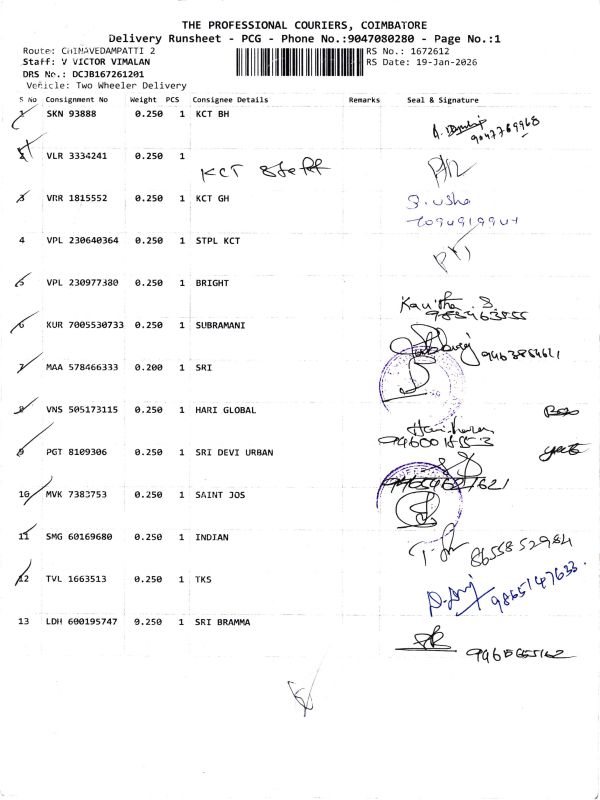 THE PROFESSIONAL COURIERS, COIMBATORE
Delivery Runsheet - PCG - Phone No.:9047080280 - Page No.:1
Route: CHINAVEDAMPATTI 2
RS No.: 1672612
Staff: V VICTOR VIMALAN
RS Date: 19-Jan-2026
DRS No.: DCJB167261201
Vehicle: Two Wheeler Delivery
S No Consignment No Weight PCS Consignee Details Remarks Seal & Signature
1 SKN 93888 0.250 1 KCT BH
9047769968
2 VLR 3334241 0.250 1
KCT Staff
3 VRR 1815552 0.250 1 KCT GH
S. Usha
4 VPL 230640364 0.250 1 STPL KCT
5 VPL 230977380 0.250 1 BRIGHT
Kavitha S.
6 KUR 7005530733 0.250 1 SUBRAMANI
7 MAA 578466333 0.200 1 SRI
8 VNS 505173115 0.250 1 HARI GLOBAL
Hariharan
9 PGT 8109306 0.250 1 SRI DEVI URBAN
10 MVK 7383753 0.250 1 SAINT JOS
11 SMG 60169680 0.250 1 INDIAN
8655852984
12 TVL 1663513 0.250 1 TKS
9865147633
13 LDH 600195747 0.250 1 SRI BRAMMA